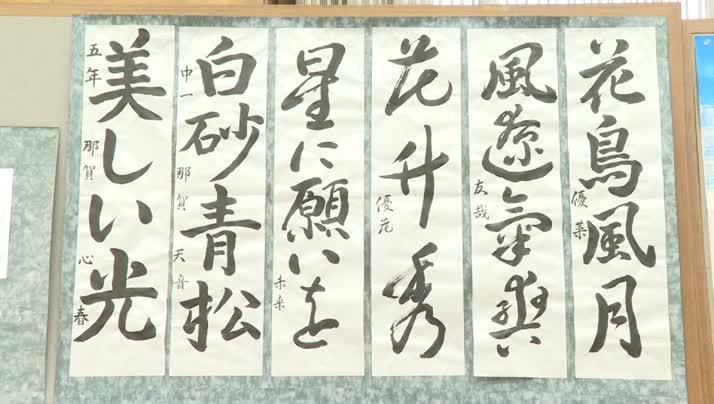 花鳥風月
優菜
風遼氣
友哉
花升秀
優花
星に願いを
未来
白砂青松
中一 那賀 天音
美しい光
五年 那賀 心春